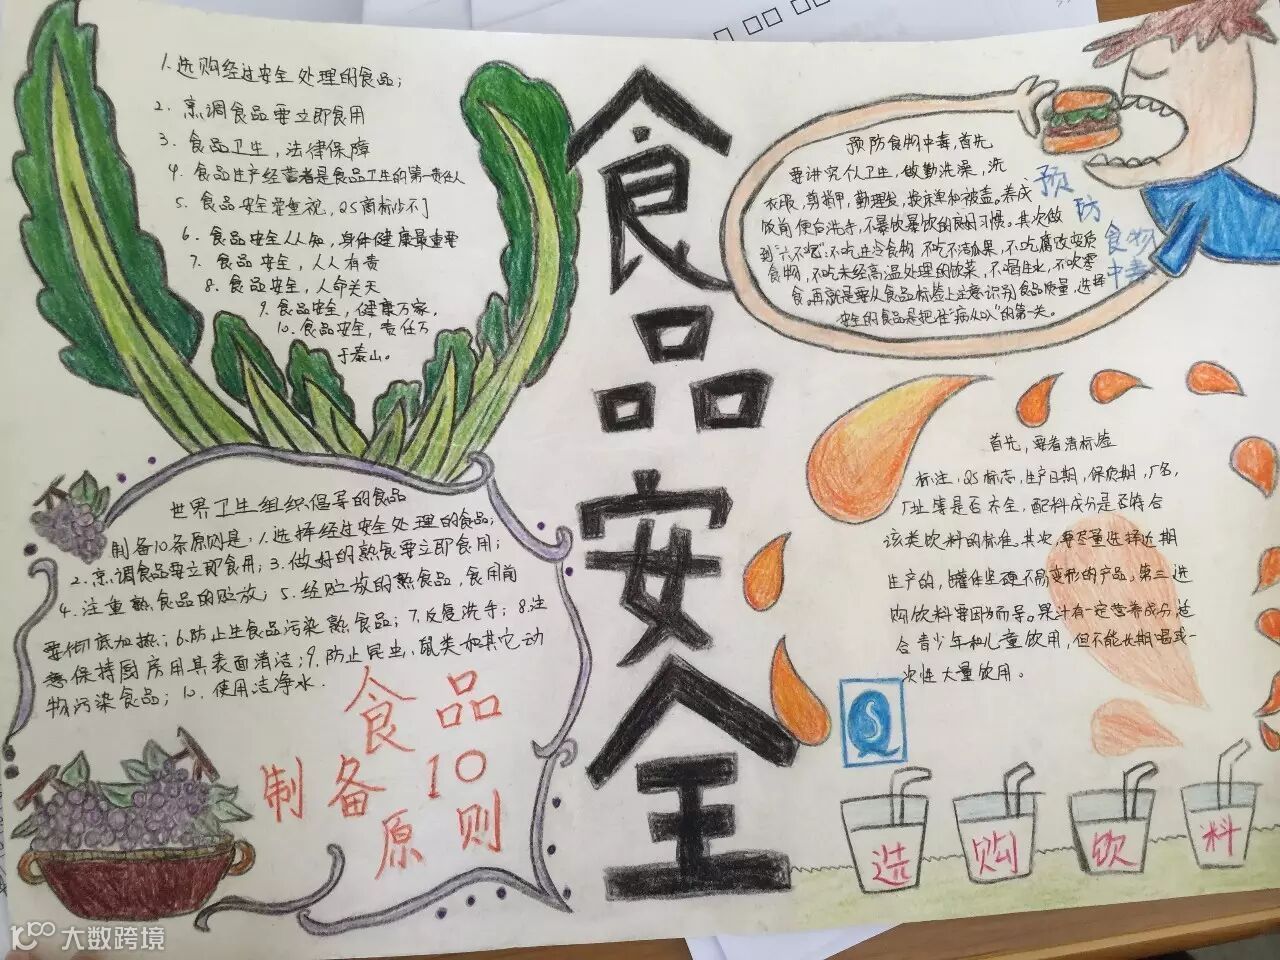 1.选购经过安全处理的食品；
2、烹调食品要立即食用
3、食品卫生，法律保障
4、食品生产经营者是食品卫生的第一责任人
5、食品安全要重视，QS商标少不了
6、食品安全人人知，身体健康最重要
7、食品安全，人人有责
8、食品安全，人命关天
9、食品安全，健康万家，
10、食品安全，责任万
于泰山。
食品安全
预防食物中毒，首先
要讲究个人卫生，做勤洗澡，洗
衣服，剪指甲，勤理发，换床单和被盖，养成
饭前便后洗手，不暴饮暴饮的良好习惯。其次做
到“六不吃”：不吃生冷食物 不吃不洁瓜果，不吃腐败变质
食物，不吃未经高温处理的饭菜，不喝生水，不吃零
食。再就是要从食品标签上注意识别食品质量，选择
安全的食品是把住“病从口入”的第一关。
预防
食物
中毒
首先，要看清标签
标注，QS标志，生产日期，保质期，厂名，
厂址等是否齐全，配料成分是否符合
该类饮料的标准。其次，要尽量选择近期
生产的，罐体坚硬不易变形的产品，第三选
购饮料要因为而导。果汁有一定营养成分，适
合青少年和儿童饮用，但不能长期喝或一
次性大量饮用。
QS
选购饮料
世界卫生组织倡导的食品
制备10条原则是：1.选择经过安全处理的食品；
2、烹调食品要立即食用；3、做好的熟食要立即食用；
4、注重熟食品的贮放；5、经贮放的熟食品，食用前
要彻底加热；6.防止生食品污染熟食品；7.反复洗手；8.注
意保持厨房用具表面清洁；9、防止昆虫、鼠类和其它动
物污染食品；10、使用洁净水.
食品
制备10
原则
大数跨境